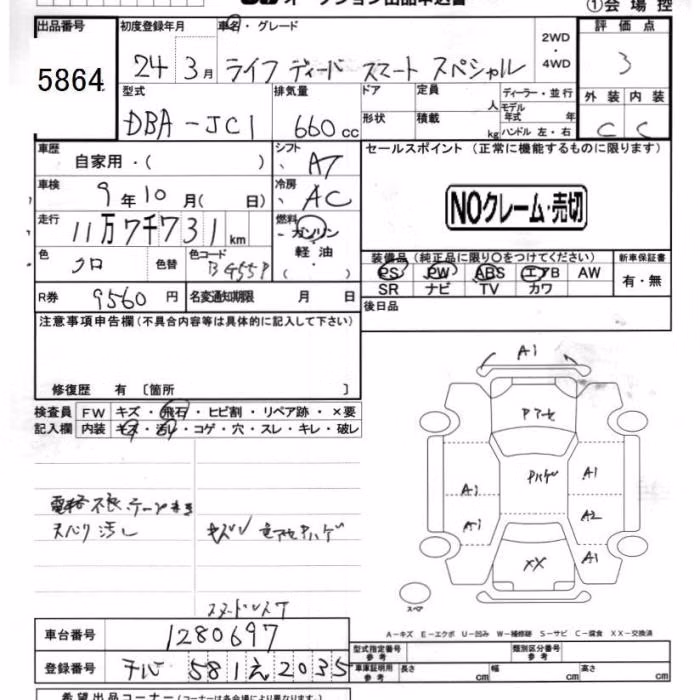 オークション出品申込書
①会場控
出品番号 初度登録年月 車名・グレード 2WD・4WD 評価点
5864 24年3月 ライフ ディーバ スマート スペシャル 3
型式 排気量 ドア 定員 人 ディーラー・並行 外装 内装
DBA-JC1 660cc 形状 積載 kg モデル年式 年 ハンドル 左・右 C C
車歴 自家用・( ) シフト AT セールスポイント (正常に機能するものに限ります)
車検 9年10月( 日) 冷房 AC
NOクレーム・売切
走行 11万7千731km 燃料 ガソリン・軽油・( )
色 クロ 色替 色コード 装備品(純正品に限り○をつけてください) 新車保証書
PS PW ABS エアB AW 有・無
SR ナビ TV カワ
R券 9560円 名変通知期限 月 日 後日品
注意事項申告欄(不具合内容等は具体的に記入して下さい)
修復歴 有 〔箇所
検査員 FW キズ・飛石・ヒビ割・リペア跡・×要
記入欄 内装 キズ・汚レ・コゲ・穴・スレ・キレ・破レ
A1
Pアセ
A1 Pハゲ A1
A1 A2
XX A1
スペア
A-キズ E-エクボ U-凹み W-補修跡 S-サビ C-腐食 XX-交換済
車台番号 1280697
型式指定番号 参考 類別区分番号 参考
登録番号 チバ 581 え 2035
車庫証明用 参考 長さ cm 幅 cm 高さ cm
希望出品コーナー(コーナーは各会場により異なります)